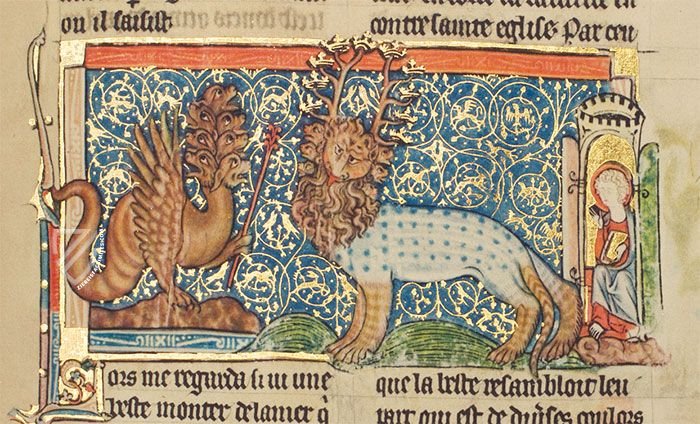 ou il saisist
contre sainte eglise. Par ceu
Lors me regarda si ui une
beste monter de la mer q
que la beste resambloit leu
part qui est de diuses coulors